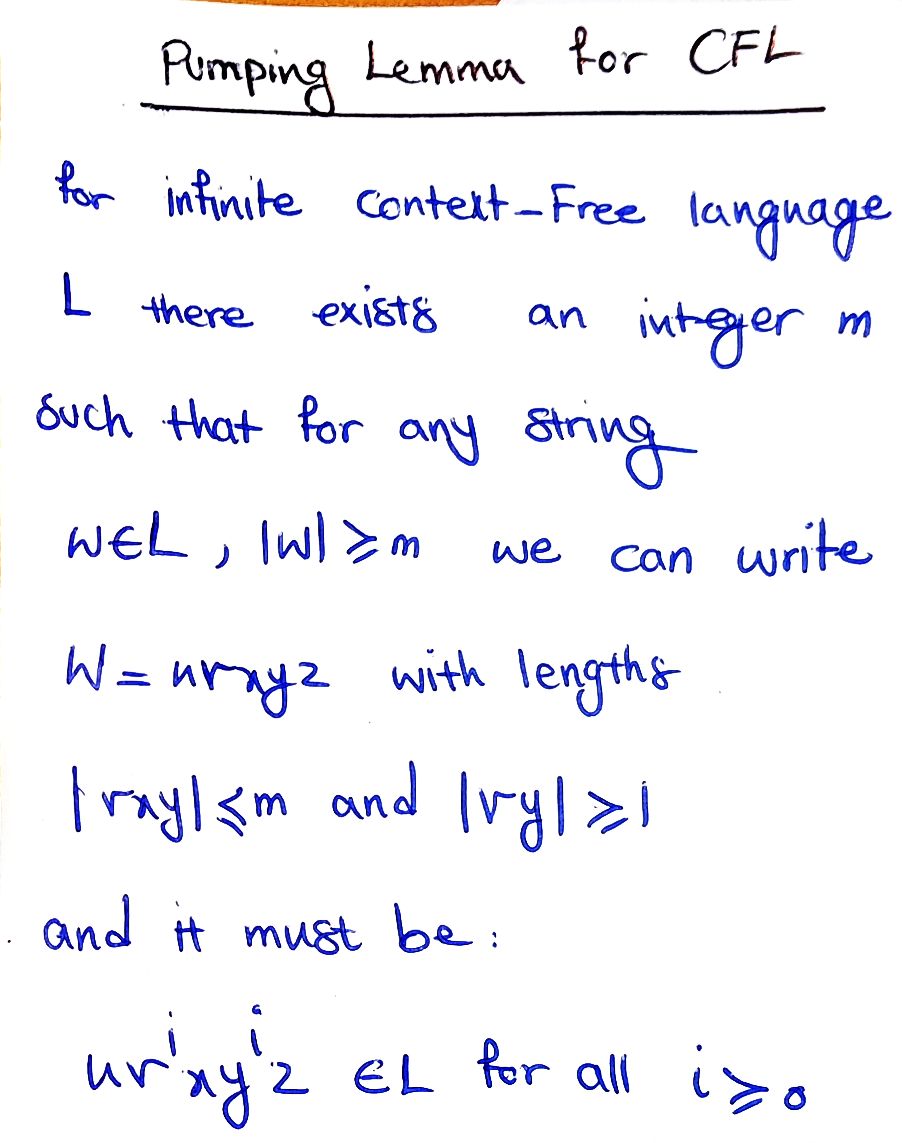 Pumping Lemma for CFL
for infinite Context-Free language
L there exists an integer m
such that for any string
w∈L, |w| ⩾ m we can write
W = uvxyz with lengths
|vxy| ⩽ m and |vy| ⩾ 1
and it must be:
uvⁱxyⁱz ∈ L for all i ⩾ 0